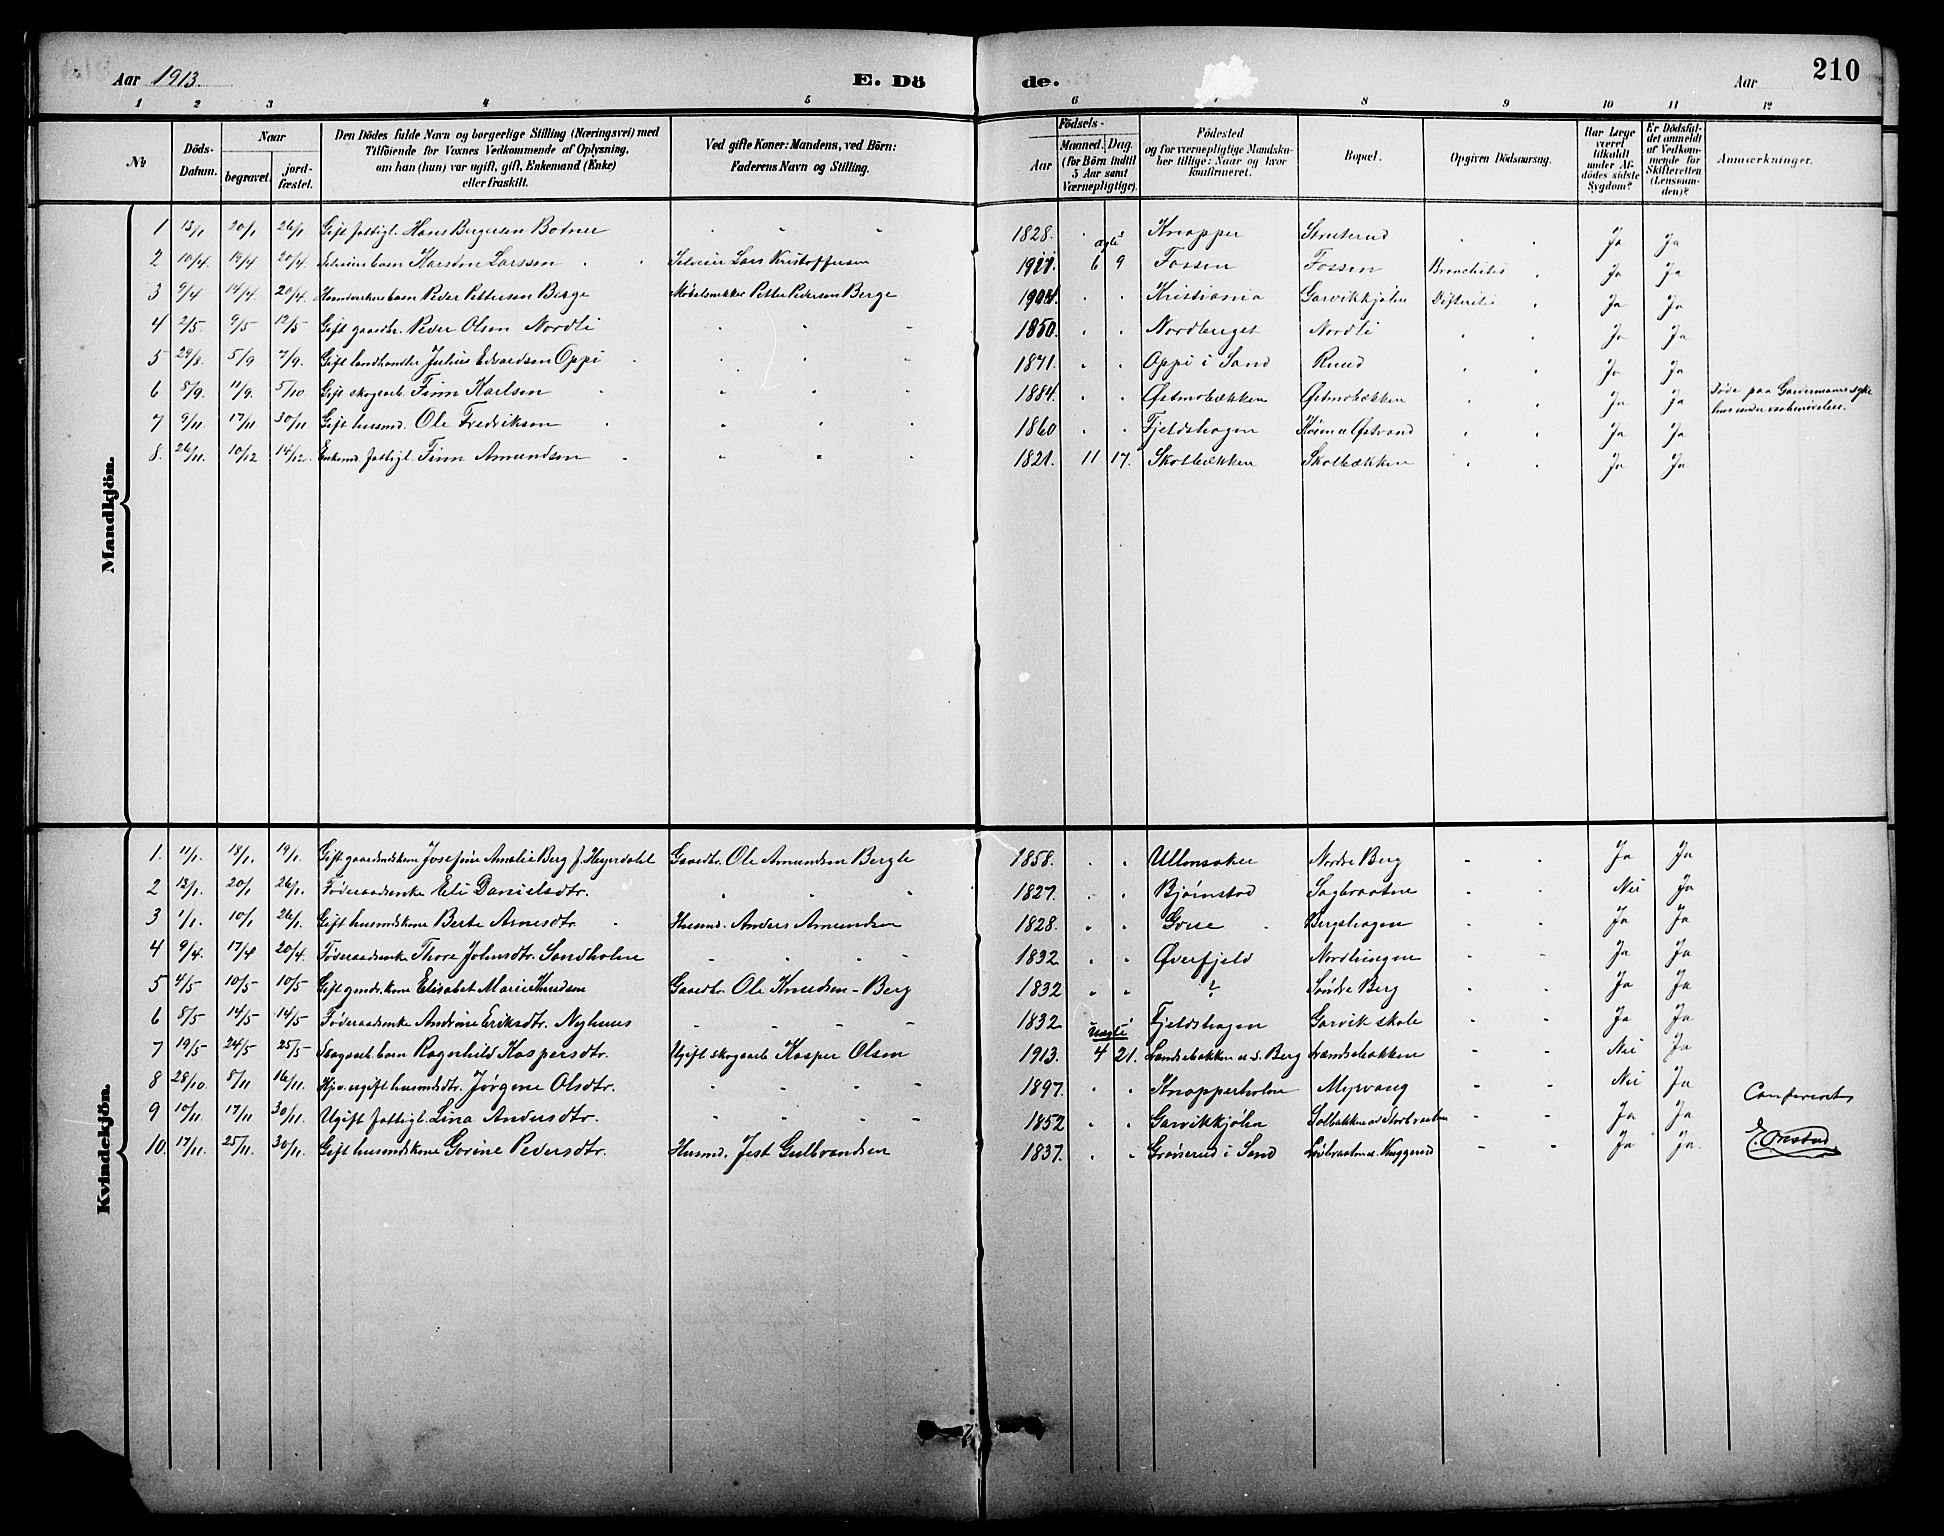 Aar 1913. E. Dö de. Aar 210
1 2 3 4 5 6 7 8 9 10 11 12
№ Döds-Datum. Naar begravet. jord-fæstet. Den Dödes fulde Navn og borgerlige Stilling (Næringsvei) med Tilföiende for Voxnes Vedkommende af Oplysning, om han (hun) var ugift, gift, Enkemand (Enke) eller fraskilt. Ved gifte Koner: Mandens, ved Börn: Faderens Navn og Stilling. Födsels- Aar Maaned. Dag. (for Börn indtil 5 Aar samt Værnepligtige). Födested og for værnepligtige Mandska-ber tillige: Naar og hvor konfirmeret. Bopæl. Opgiven Dödsaarsag. Har Læge været tilkaldt under Af-dödes sidste Sygdom? Er Dödsfal-det anmeldt af Vedkom-mende for Skifteretten (Lensman-den)? Anmærkninger.
Mandkjön.
1 13/1 20/1 26/1 Gift fattigl. Hans Bergersen Botner " " " 1828. " " Knapper Struterud " " Ja Ja
ægte
2 10/4 19/4 20/4 Selveierbarn Karsten Larssen Selveier Lars Kristoffersen 1911 6 9 Fossen Fossen Bronchitis " Ja Ja
3 9/4 14/4 20/4 Handverkerbarn Peder Pettersen Berge Møbelsnekker Petter Pedersen Berge 1904 " " Kristiania Garvikkjølen Difteritis " Ja Ja
4 2/5 9/5 12/5 Gift gaardbr. Peder Olsen Nordli " " " 1850. " " Nordberget Nordli " " Ja Ja
5 29/8 5/9 7/9 Gift landhandler Julius Edvardsen Oppi " " " 1871. " " Oppi i Sand Ruud " " Ja Ja
6 5/9 11/9 5/10 Gift skogsarb. Finn Karlsen " " " 1884. " " Østmobækken Østmobækken " " Ja Ja Døde paa Gardermoens syke
hus under vaabenøvelser.
7 9/11 17/11 30/11 Gift husmd. Ole Fredriksen " " " 1860 " " Fjeldshagen Kroen u. Østvand " " Ja Ja
8. 26/11. 10/12 14/12 Enkemd. fattigl. Finn Amundsen " " " 1821. 11 17. Skolbækken Skolbækken " " Ja Ja
Kvindekjön.
1. 11/1. 18/1. 19/1. Gift gaardmdskone Josefine Amalie Berg f. Heyerdahl Gaardbr. Ole Amundsen Berg 1858. " " Ullensaker Nordre Berg - - Ja Ja
2 12/1. 20/1 26/1. Føderaadsenke Eli Danielsdtr. " " " 1827. " " Bjørnstad Sagbraaten - - Nei Ja
3 1/1. 10/1 26/1. Gift husmdskone Berte Arnesdtr. Husmd. Anders Amundsen 1828. " " Gorse Bergshagen - - Ja Ja
4 9/4. 17/4 20/4. Føderaadsenke Thore Johnsdtr. Sandholen " " " 1832 " " Øverfjeld Nordhungen - - Ja Ja
5 4/5 10/5 10/5 Gift gmds.kone Elisabet Marie Knudsen Gaardbr. Ole Knudsen - Berg 1832 " " ? Søndre Berg - - Ja Ja
6 8/5 14/5 14/5 Føderaadsenke Andrine Eriksdtr. Nyhuus " " " 1832 " " Fjeldshagen Garvik skole - - Ja Ja
uægte
7 19/5 24/5 25/5 Skogsarb. barn Ragnhild Kaspersdtr. Ugift skogsarb Kasper Olsen 1913. 4 21. Landsebakken u. s. Berg Landsebakken - - Nei Ja
8 28/10. 5/11 16/11. Hjv. ugift husmdsdtr. Jørgine Olsdtr. " " " 1897. " " Knapperholen Myrvang - - Nei Ja
9 10/11. 17/11 30/11. Ugift fattigl. Lina Andersdtr. " " " 1852 " " Garvikkjølen Solbakken - - Ja Ja Confereret
10. 17/11. 25/11. 30/11. Gift husmdskone Gorine Pedersdtr. Husmd. Jest Gulbrandsen 1837. " " Grøiserud i Sand Løbraaten u. Nuggerud - - Ja Ja.